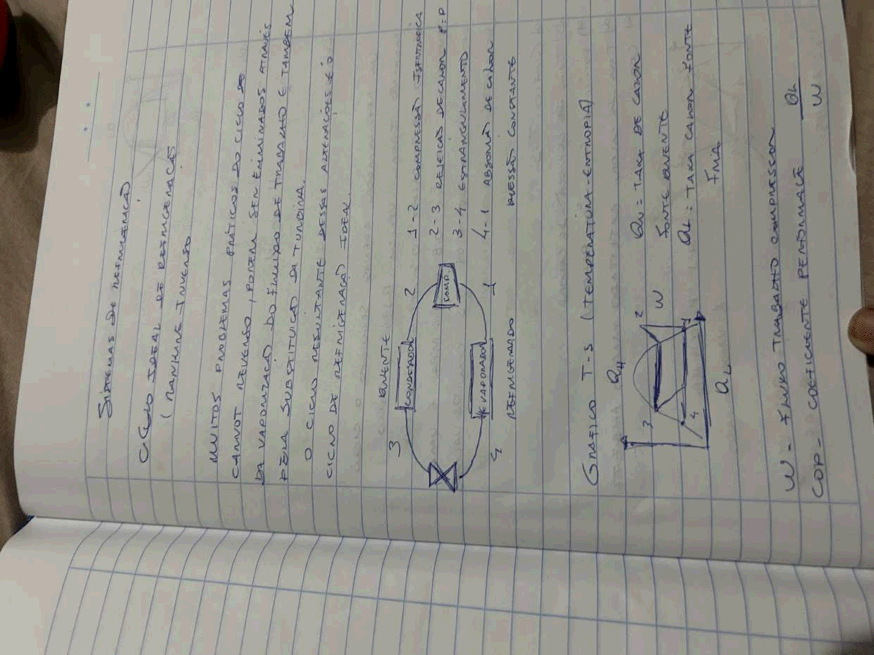 SISTEMAS DE REFRIGERAÇÃO
CICLO IDEAL DE REFRIGERAÇÃO
(RANKINE INVERSO
MUITOS PROBLEMAS PRÁTICOS DO CICLO DE
CARNOT REVERSO, PODEM SER ELIMINADOS ATRAVÉS
DA VAPORIZAÇÃO DO FLUIDO DE TRABALHO E TAMBÉM
PELA SUBSTITUIÇÃO DA TURBINA.
O CICLO RESULTANTE DESSAS ALTERAÇÕES É O
CICLO DE REFRIGERAÇÃO IDEAL.
QUENTE
3
CONDENSADOR
2
COMP
4
VAPORIZADOR
1
REFRIGERADO
1-2 COMPRESSÃO ISENTRÓPICA
2-3 REJEIÇÃO DE CALOR P=P
3-4 ESTRANGULAMENTO
4-1 ABSORÇÃO DE CALOR
PRESSÃO CONSTANTE
GRÁFICO T-S (TEMPERATURA-ENTROPIA)
QH
3
2
W
4
1
QL
QH = TAXA DE CALOR
FONTE QUENTE
QL = TAXA CALOR FONTE
FRIA
W = FLUXO TRABALHO COMPRESSOR
COP = COEFICIENTE PERFORMACE QL
W